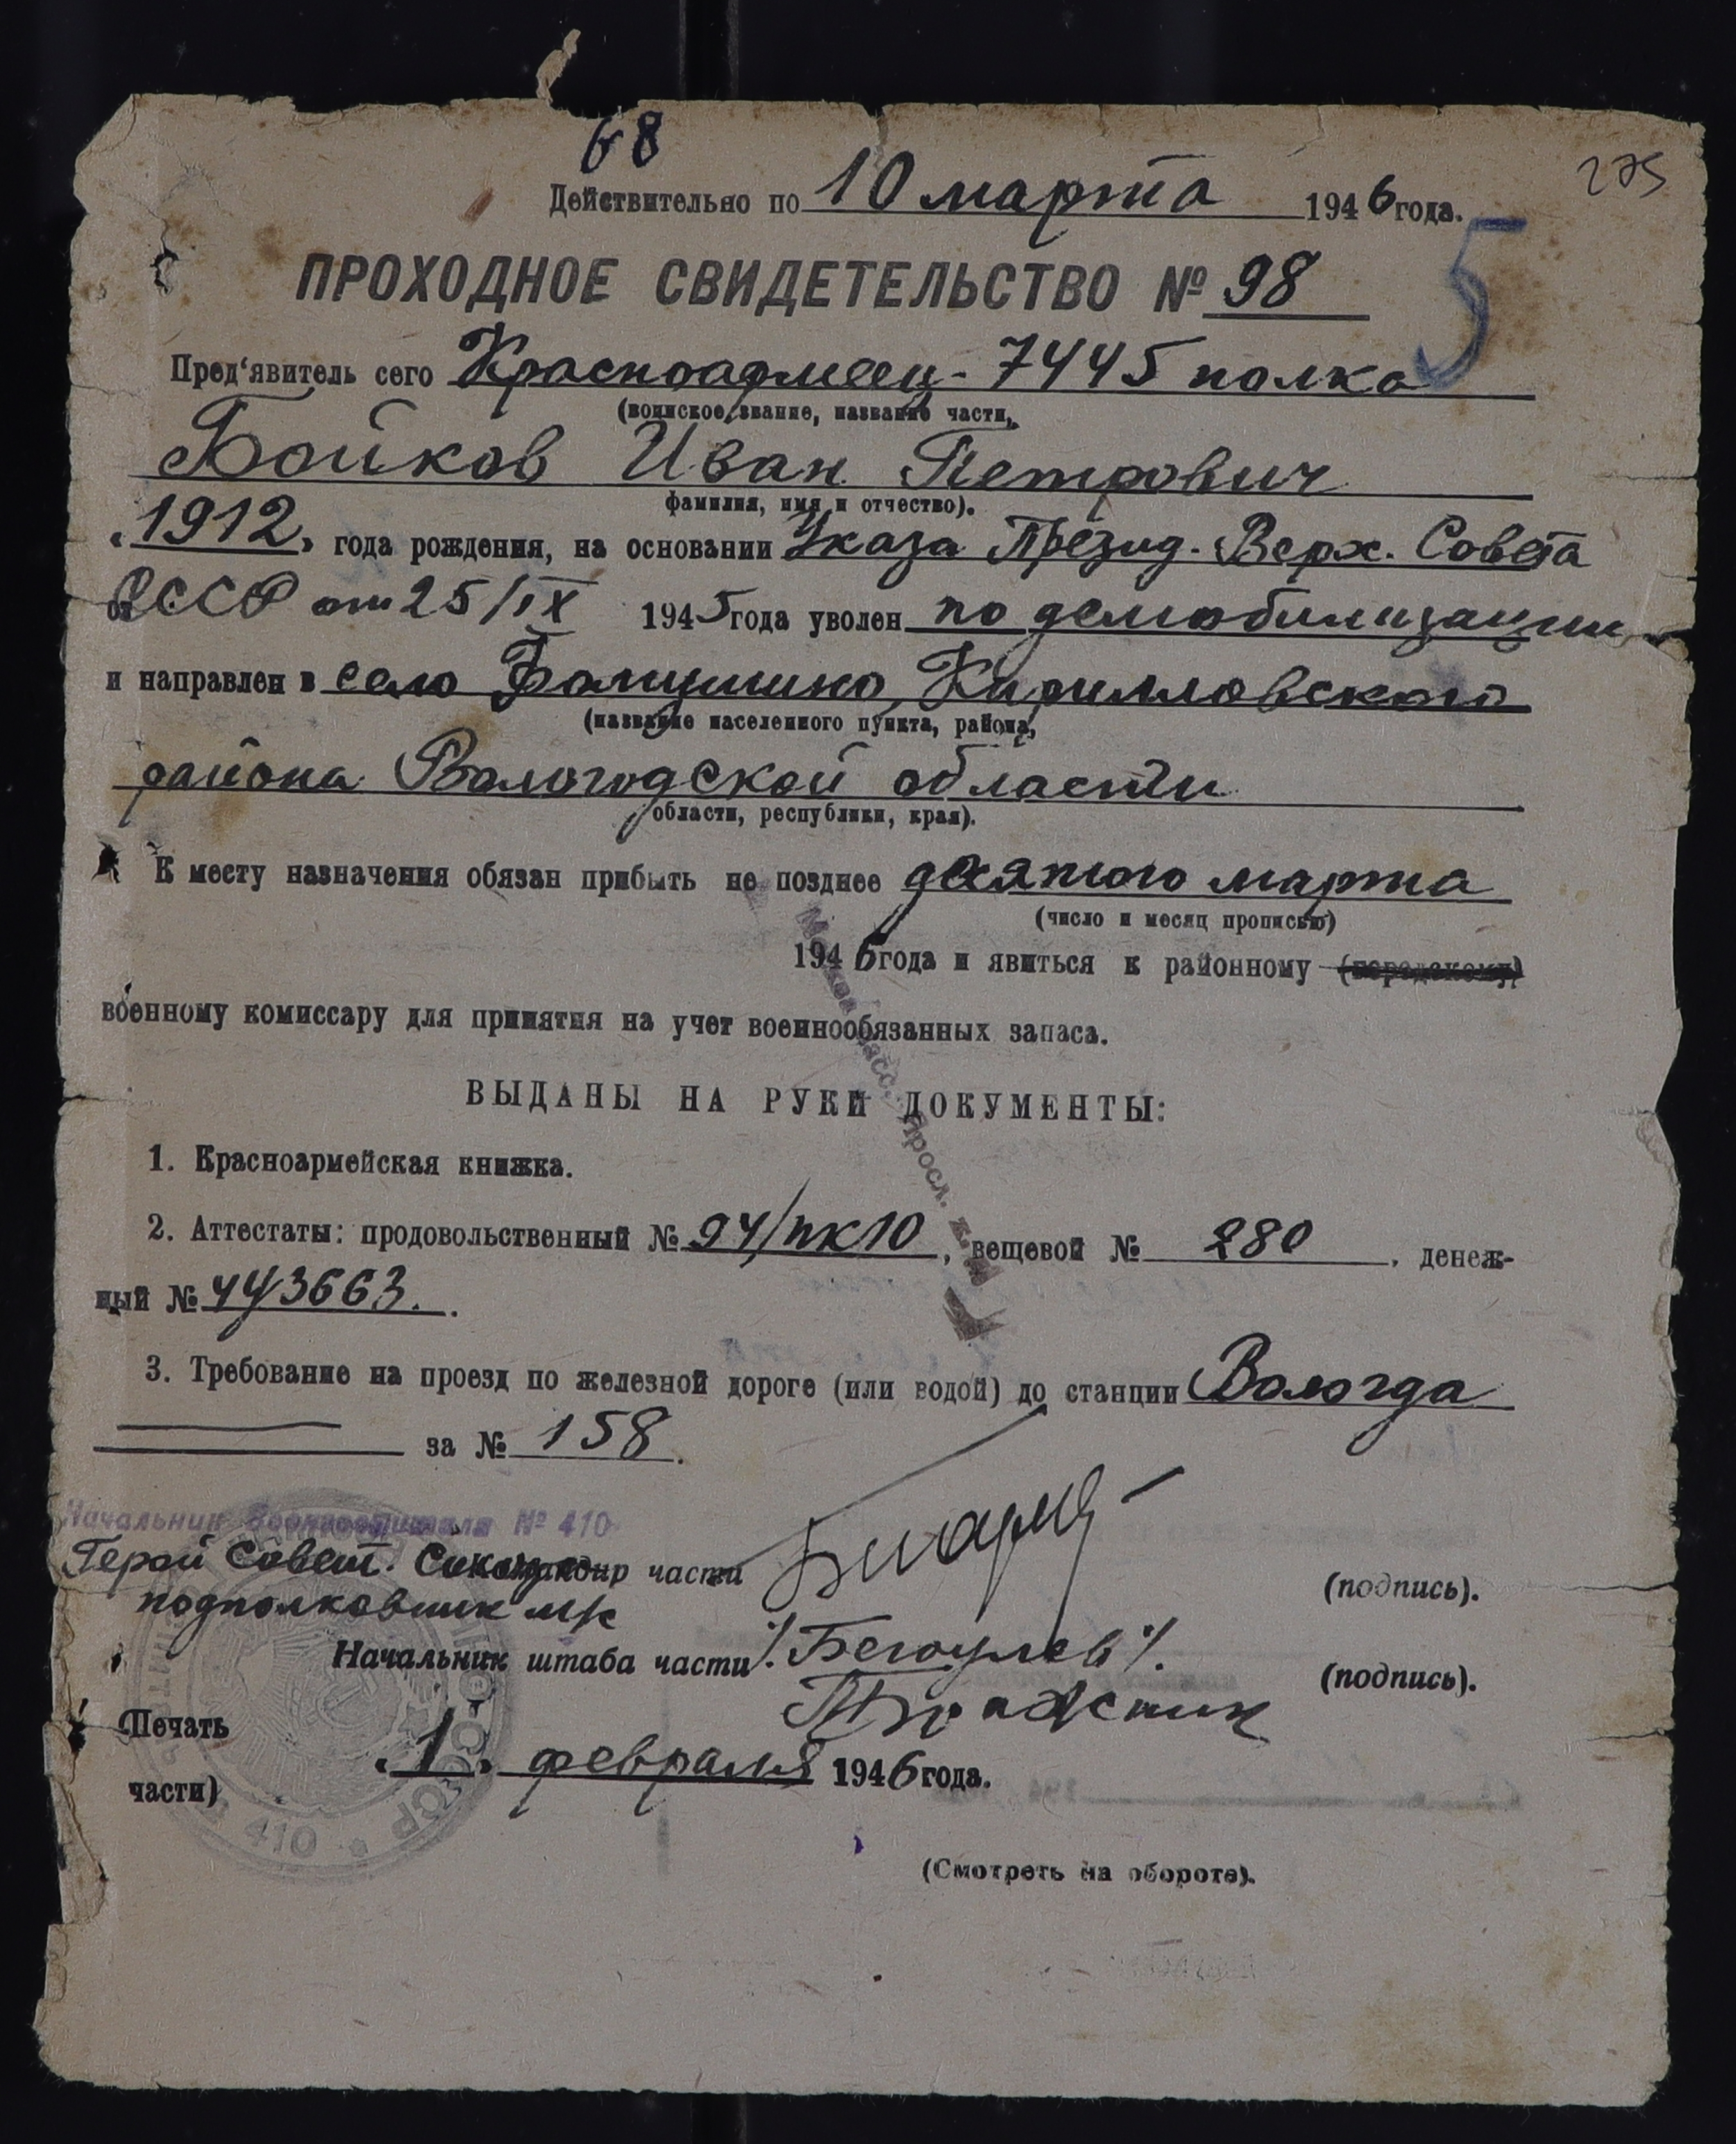 68
275
Действительно по 10 марта 1946 года.
ПРОХОДНОЕ СВИДЕТЕЛЬСТВО № 98
5
Пред'явитель сего Красноармеец - 7445 полка
(воинское звание, название части,
Бойков Иван Петрович
фамилия, имя и отчество).
"1912" года рождения, на основании Указа Презид. Верх. Совета
СССР от 25/IX 1945 года уволен по демобилизации
и направлен в село Кирилловского
(название населенного пункта, района,
района Вологодской области
области, республики, края).
К месту назначения обязан прибыть не позднее десятого марта
(число и месяц прописью)
1946 года и явиться к районному (городскому)
военному комиссару для принятия на учет военнообязанных запаса.
ВЫДАНЫ НА РУКИ ДОКУМЕНТЫ:
1. Красноармейская книжка.
2. Аттестаты: продовольственный № 94/пк10, вещевой № 280, денеж-
ный № 443663.
3. Требование на проезд по железной дороге (или водой) до станции Вологда
за № 158.
Начальник Военгоспиталя № 410
Герой Совет. Союза Командир части (подпись).
подполковник м/с
Начальник штаба части (подпись).
(Печать
части)
"1" февраля 1946 года.
410
(Смотреть на обороте).